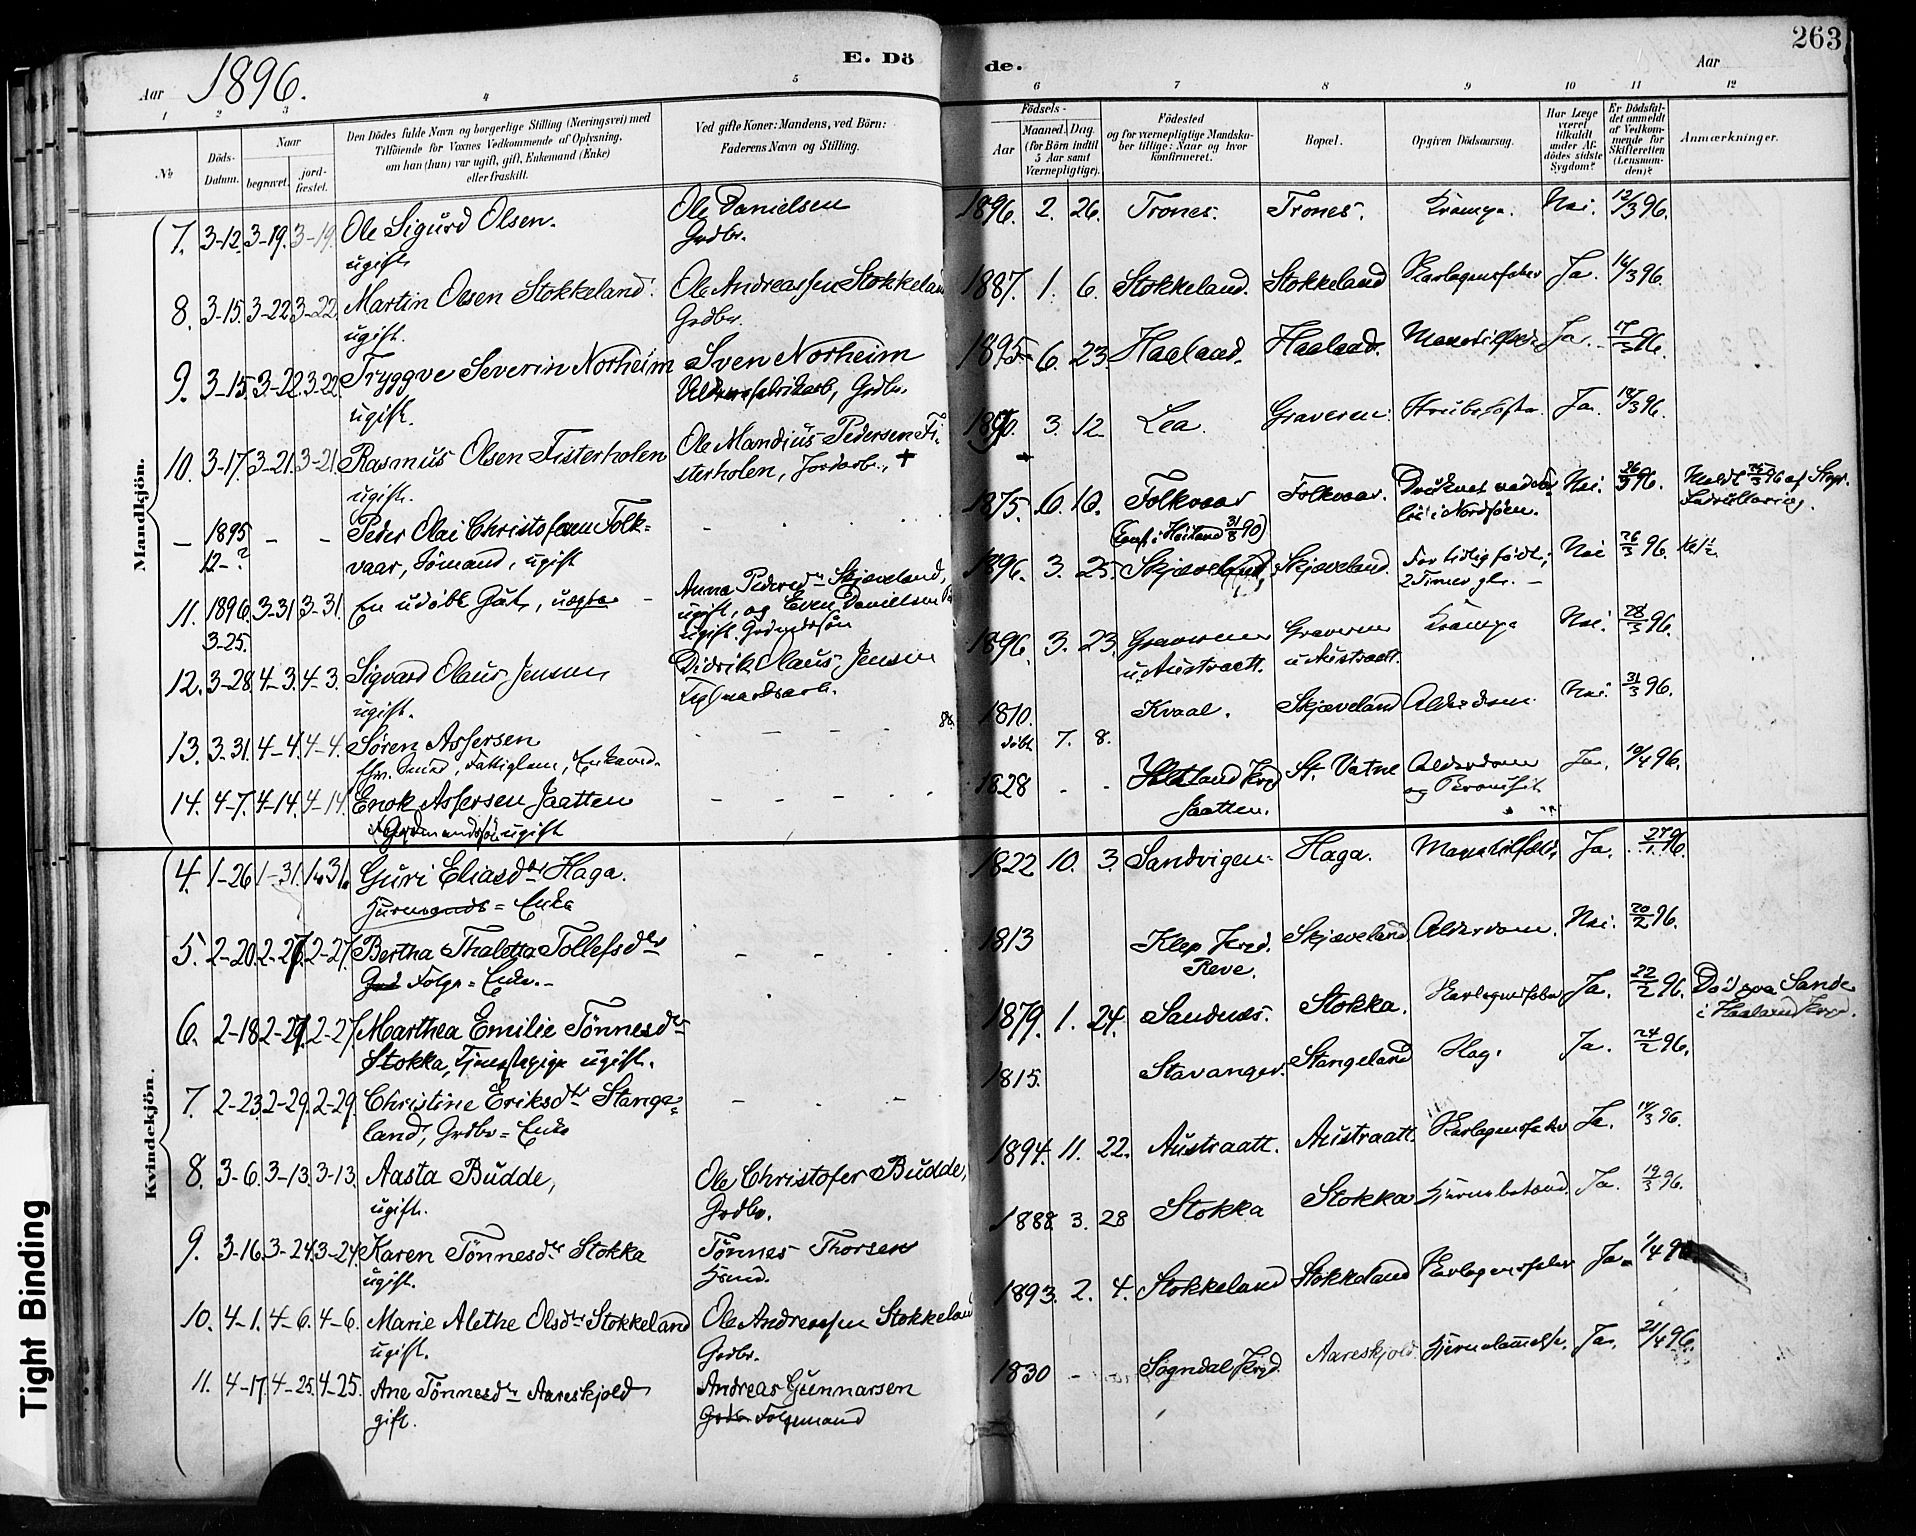 263
1896.
E. Dö
de.
Aar
Aar
1 2 3 4 5 6 7 8 9 10 11 12
No
Döds-Datum.
Naar
begravet.
jord-fæstet.
Den Dödes fulde Navn og borgerlige Stilling (Næringsvei) med
Tilföiende for Voxnes Vedkommende af Oplysning,
om han (hun) var ugift, gift, Enkemand (Enke)
eller fraskilt.
Ved gifte Koner: Mandens, ved Börn:
Faderens Navn og Stilling.
Födsels-
Aar
Maaned. Dag.
(for Börn indtil
5 Aar samt
Værnepligtige).
Födested
og for værnepligtige Mandskaber tillige: Naar og hvor
konfirmeret.
Bopæl.
Opgiven Dödsaarsag.
Har Læge
været
tilkaldt
under Afdödes sidste
Sygdom?
Er Dödsfaldet anmeldt
af Vedkommende for
Skifteretten
(Lensmanden)?
Anmærkninger.
Mandkjön.
7. 3-12. 3-19. 3-19. Ole Sigurd Olsen. Ole Danielsen 1896. 2. 26. Trones. Trones. Krampe. Nei. 12/3 96.
ugift Grdbr.
8. 3-15. 3-22. 3-22. Martin Olsen Stokkeland. Ole Andreassen Stokkeland 1887. 1. 6. Stokkeland. Stokkeland Ja. 16/3 96.
ugift. Grdbr.
9. 3-15. 3-22. 3-22. Tryggve Severin Norheim Sven Norheim 1895 6. 23. Haaland. Haaland. Ja. 17/3 96.
ugift. Grdbr.
10. 3-17. 3-21. 3-21. Rasmus Olsen Fisterholen Ole Mandius Pedersen Fi- 3. 12 Lea. Graveren. Ja. 18/3 96.
ugift. sterholen, Jordarb., +
— 1895 — — Peder Olai Christofersen Folk= 1875. 6. 10. Folkvaar Folkvaar. Nei. 26/3 96.
12-? vaar, Sömand, ugift (Conf. i Höiland 31/8 90) i Nordsöen.
11. 1896. 3-31 3-31. En udöbt Gut, uægte Anna Pedersdtr Skjæveland, 1896. 3. 25. Skjæveland. Skjæveland. For tidlig födt; Nei 26/3 96.
3-25. ugift, og Even Danielsen 2 Timer gl.
ugift Grdmandssön
12. 3-28. 4-3. 4-3. Sigvard Olaus Jensen Didrik Olaus Jensen 1896. 3. 23. Graveren Graveren Krampe Nei. 28/3 96.
ugift. u. Austraatt. u. Austraatt.
13. 3-31. 4-4. 4-4. Sören Assersen 1810. Kvaal. Skjæveland Alderdom. Nei. 31/3 96.
fhv. Smed, Fattiglem, Enkemd. döbt 7. 8.
14. 4-7. 4-14. 4-14. Enok Assersen Jaatten 1828 Jaatten. St. Vatne Alderdom Ja. 10/4 96.
ugift og Bronchit
Kvindekjön.
4. 1-26 1-31. Guri Eliasdtr Haga. 1822 10. 3. Sandvigen. Haga. Ja. 27/1 96.
Husmands = Enke
5. 2-20. 2-27. 2-27. Bertha Thaletta Tollefsdtr 1813 Klep Prgd. Skjæveland. Alderdom. Nei. 20/2 96.
Folge = Enke. Reve.
6. 2-18. 2-27. 2-27. Marthea Emilie Tönnesdtr 1879. 1. 24. Sandnes. Stokka. Ja. 22/2 96. Död paa Sande
Stokka, Tjenestepige ugift. i Haaland Prgd.
7. 2-23. 2-29. 2-29. Christine Eriksdtr Stange= 1815. Stavanger. Stangeland Slag. Ja. 24/2 96.
land, Grdbr = Enke
8. 3-6. 3-13. 3-13. Aasta Budde, Ole Christofer Budde, 1894. 11. 22. Austraatt. Austraatt. Ja.
ugift. Grdbr.
9. 3-16. 3-24. 3-24. Karen Tönnesdtr Stokka Tönnes Thorsen 1888 3. 28 Stokka Stokka Ja. 19/3 96.
ugift. Hsmd.
10. 4-1. 4-6. 4-6. Marie Alethe Olsdtr Stokkeland Ole Andreassen Stokkeland 1893. 2. 4. Stokkeland Stokkeland Ja. 1/4 96.
ugift. Grdbr.
11. 4-17. 4-25. 4-25. Ane Tönnesdtr Aareskjold Andreas Gunnarsen 1830 Sogndal Prgd. Aareskjold. Ja. 21/4 96.
gift. Folgemand
Tight Binding